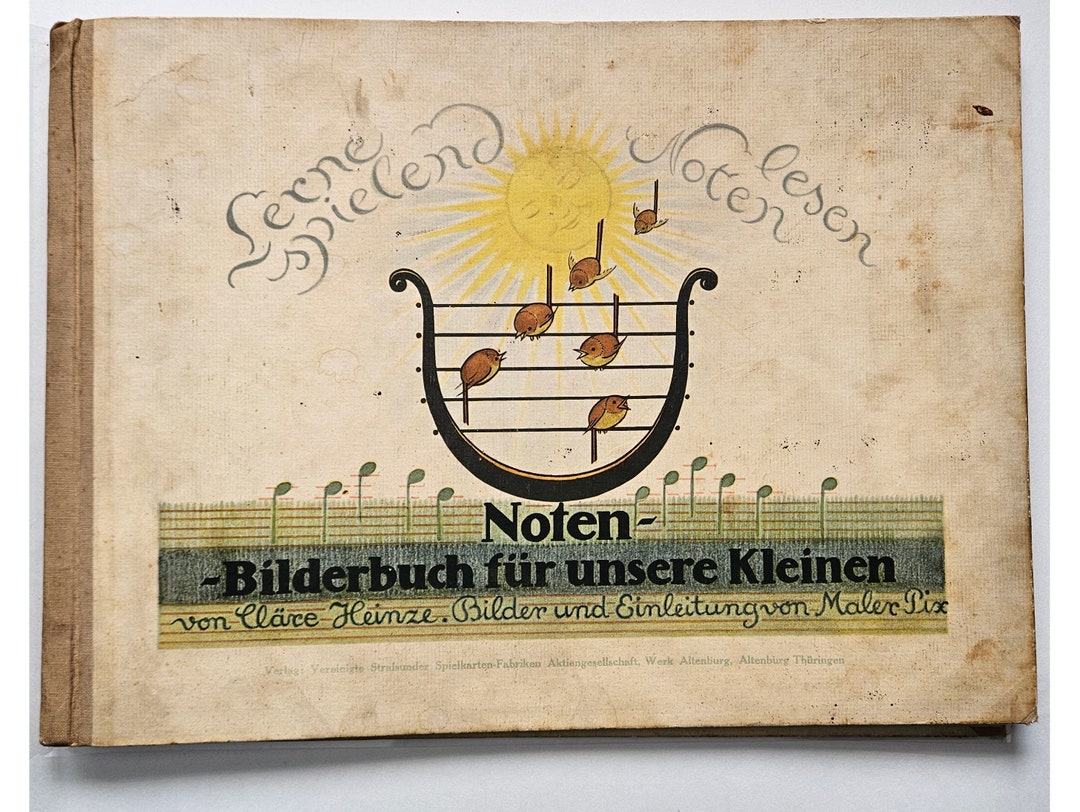 Lerne spielend Noten lesen
Noten-
-Bilderbuch für unsere Kleinen
von Cläre Heinze. Bilder und Einleitung von Maler Pix
Verlag: Vereinigte Stralsunder Spielkarten-Fabriken Aktiengesellschaft, Werk Altenburg, Altenburg Thüringen